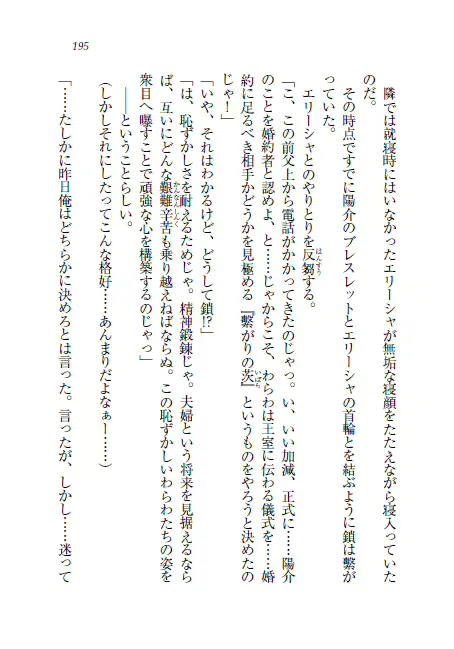 195
隣では就寝時にはいなかったエリーシャが無垢な寝顔をたたえながら寝入っていた
のだ。
その時点ですでに陽介のブレスレットとエリーシャの首輪とを結ぶように鎖は繋が
っていた。
エリーシャとのやりとりを反芻する。
「こ、この前父上から電話がかかってきたのじゃっ。い、いい加減、正式に……陽介
のことを婚約者と認めよ、と……じゃからこそ、わらわは王室に伝わる儀式を……婚
約に足るべき相手かどうかを見極める『繋がりの茨』というものをやろうと決めたの
じゃ！」
「いや、それはわかるけど、どうして鎖!?」
「は、恥ずかしさを耐えるためじゃ。精神鍛錬じゃ。夫婦という将来を見据えるなら
ば、互いにどんな艱難辛苦も乗り越えねばならぬ。この恥ずかしいわらわたちの姿を
衆目へ曝すことで頑強な心を構築するのじゃっ」
――ということらしい。
（しかしそれにしたってこんな格好……あんまりだよなぁー……）
「……たしかに昨日俺はどちらかに決めろとは言った。言ったが、しかし……迷って